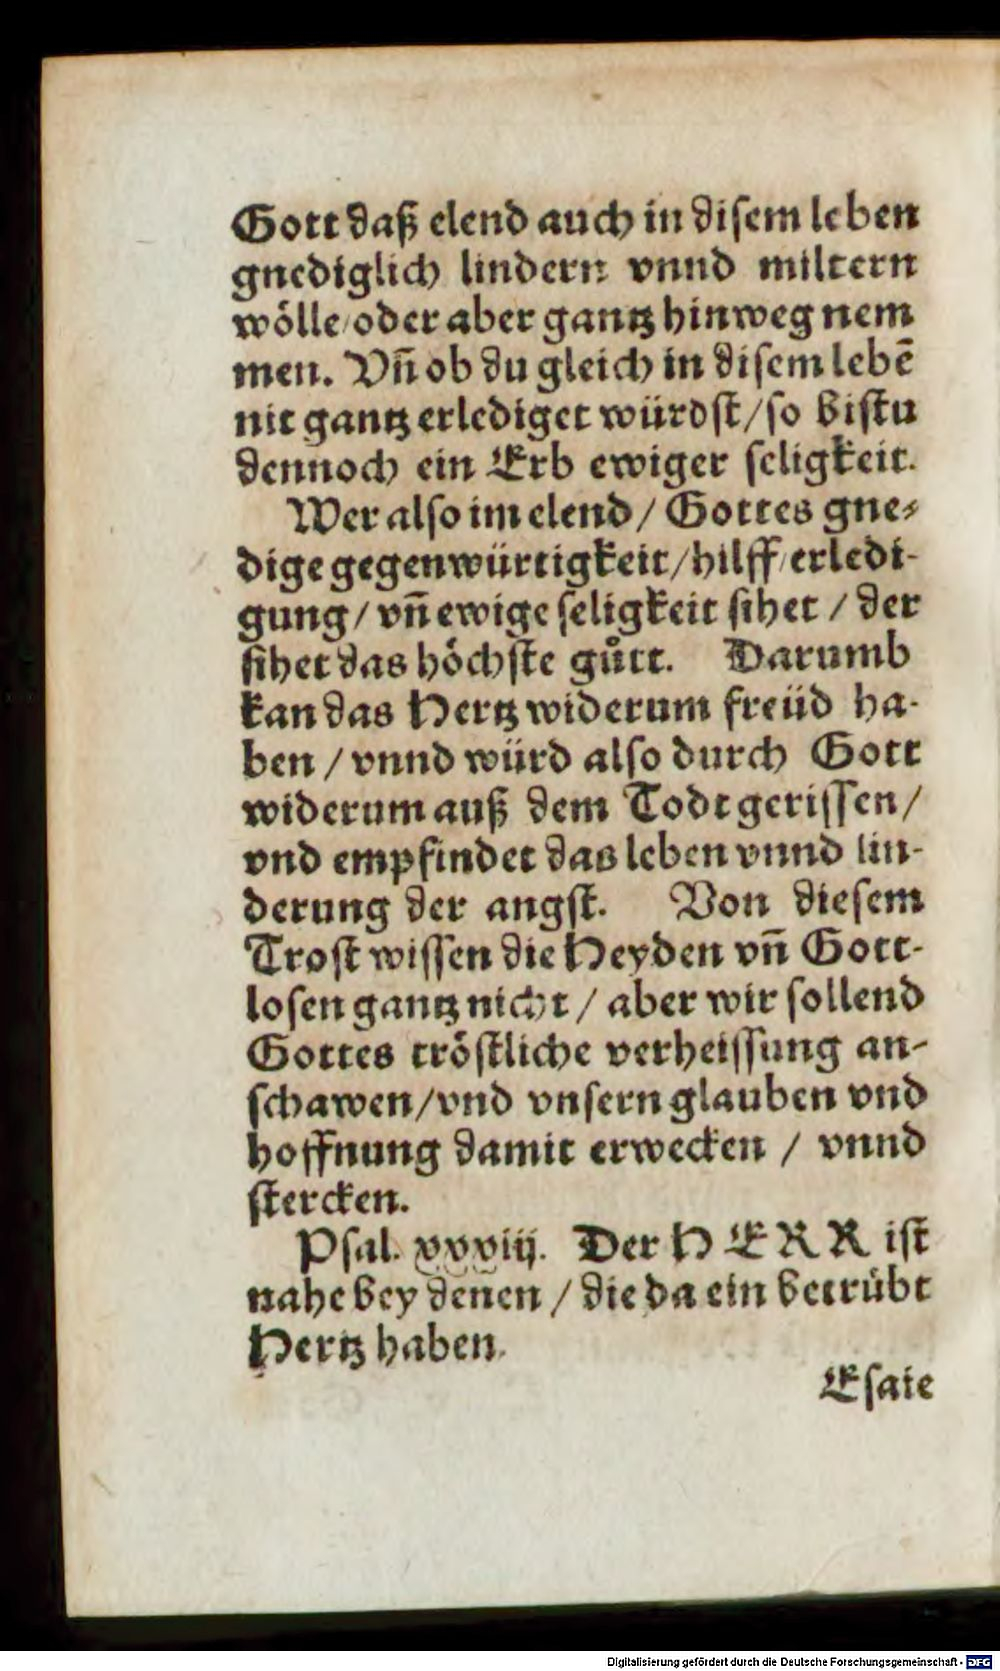 Gott daß elend auch in disem leben
gnediglich lindern vnnd miltern
wölle/oder aber gantz hinweg nem
men. Vñ ob du gleich in disem lebē
nit gantz erlediget würdst/so bistu
dennoch ein Erb ewiger seligkeit.
Wer also im elend/ Gottes gne-
dige gegenwürtigkeit/hilff/erledi-
gung/ vñ ewige seligkeit sihet / der
sihet das höchste gůtt. Darumb
kan das Hertz widerum freüd ha-
ben / vnnd würd also durch Gott
widerum auß dem Todt gerissen/
vnd empfindet das leben vnnd lin-
derung der angst. Von diesem
Trost wissen die Heyden vñ Gott-
losen gantz nicht / aber wir sollend
Gottes tröstliche verheissung an-
schawen/vnd vnsern glauben vnd
hoffnung damit erwecken / vnnd
stercken.
Psal. xxxiij. Der HERR ist
nahe bey denen / die da ein betrübt
Hertz haben.
Esaie
Digitalisierung gefördert durch die Deutsche Forschungsgemeinschaft - DFG